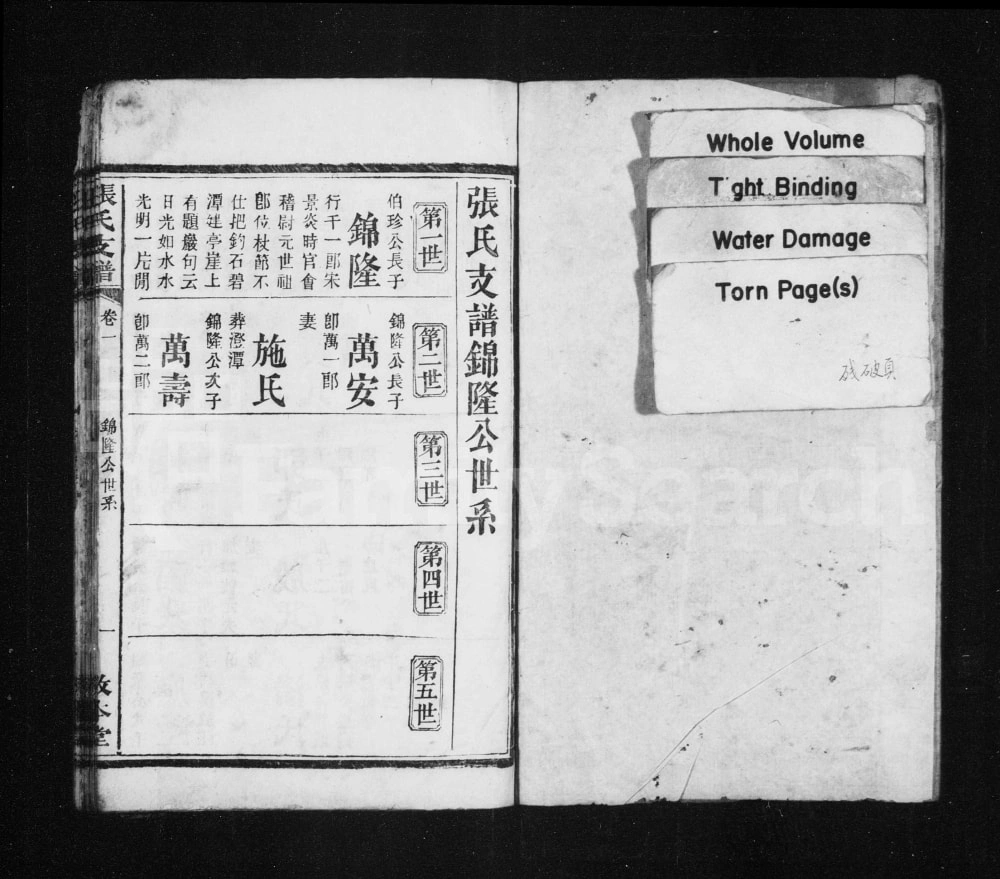 張氏支譜錦隆公世系
第一世
伯珍公長子
錦隆
行千一郎宋
景炎時官會
稽尉元世祖
卽位杖節不
仕把釣石碧
潭建亭崖上
有題巖句云
日光如水水
光明一片閒
第二世
錦隆公長子
萬安
卽萬一郎
妻
施氏
葬澄潭
錦隆公次子
萬壽
卽萬二郎
第三世
第四世
第五世
張氏支譜
卷一
錦隆公世系
一
敦本堂
Whole Volume
T ght Binding
Water Damage
Torn Page(s)
残破頁
FamilySearch